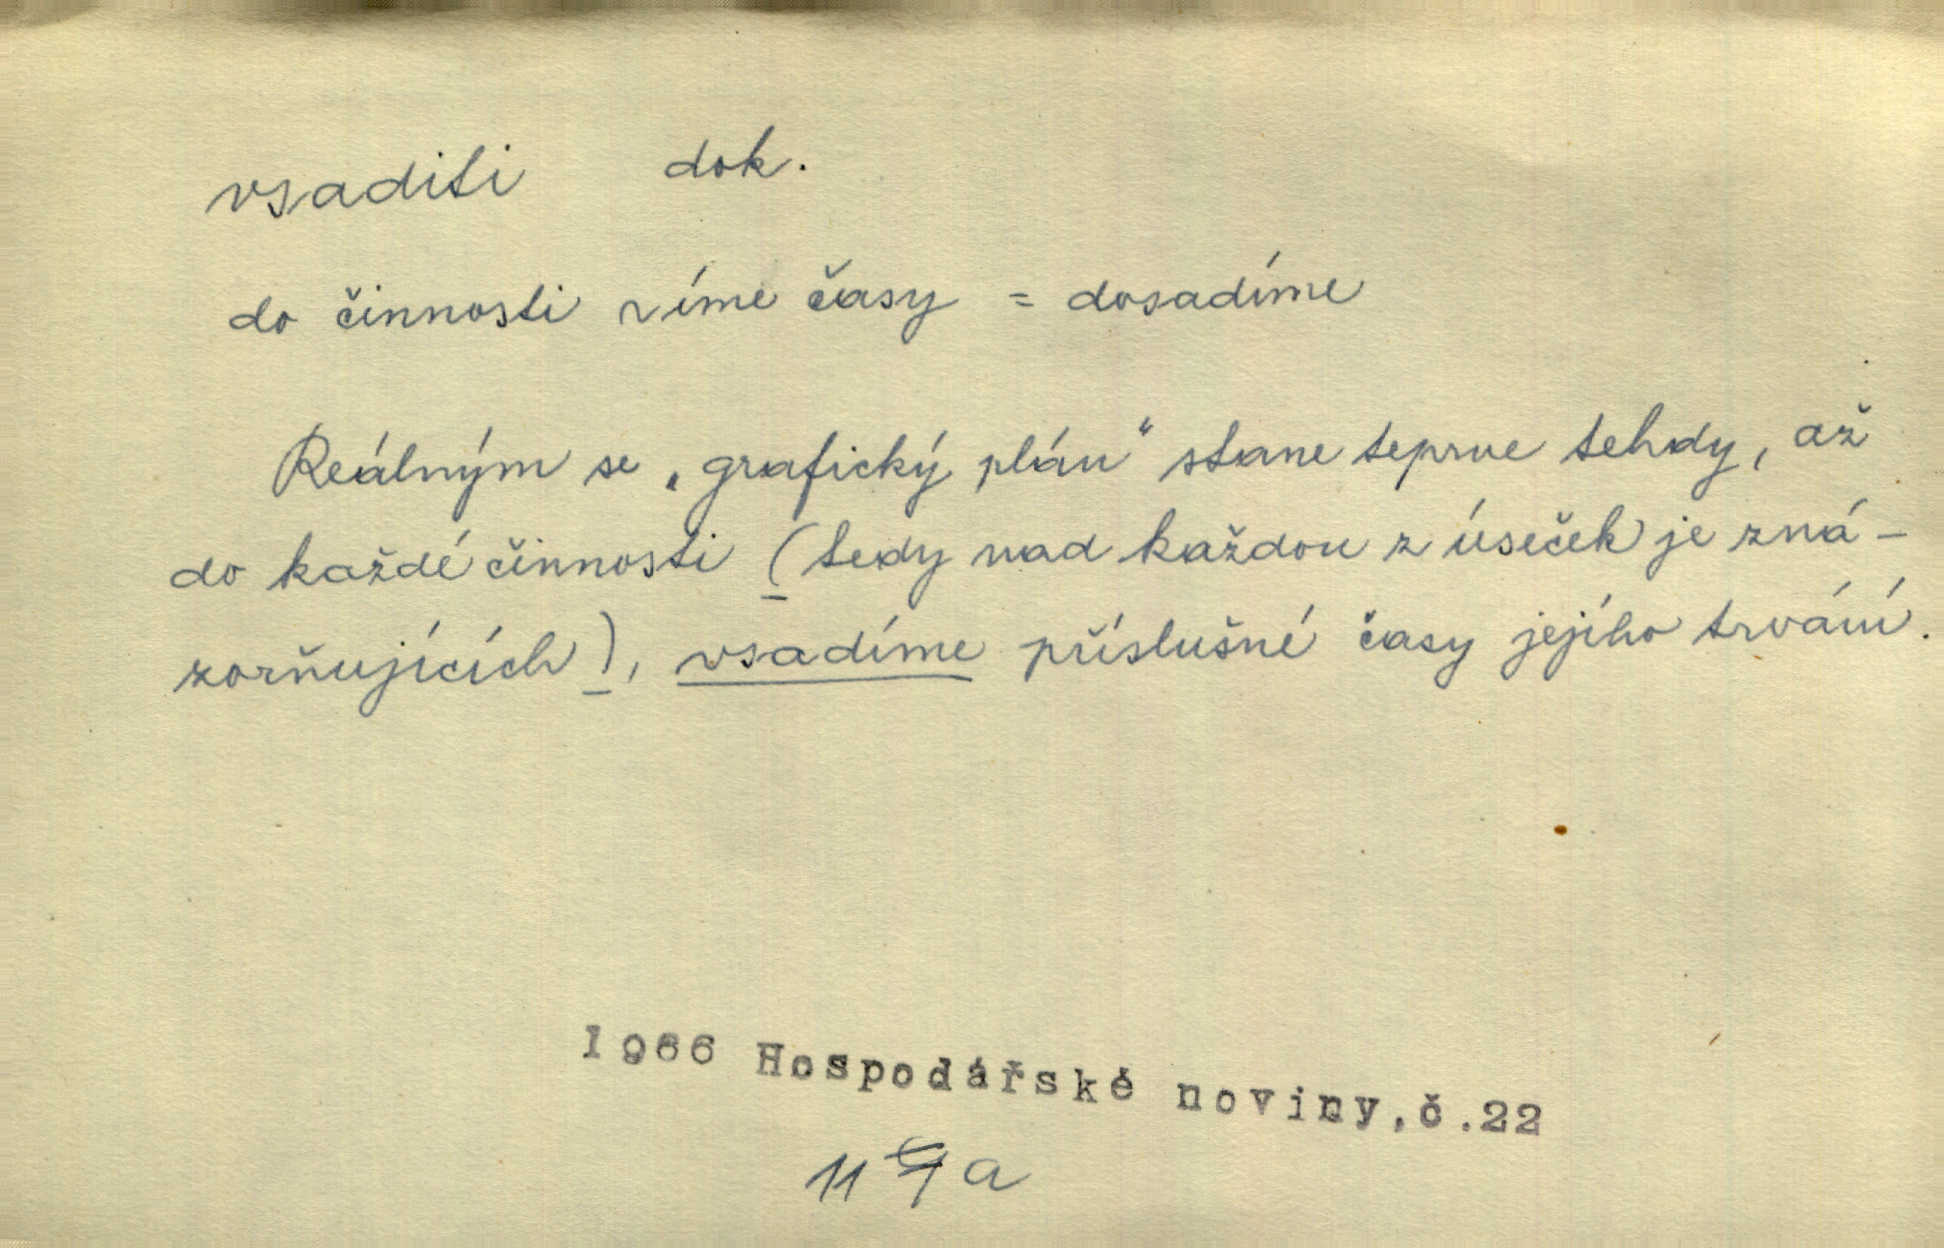 vsaditi dok.
do činnosti víme časy = dosadíme
Reálným se „grafický plán“ stane teprve tehdy, až
do každé činnosti (tedy nad každou z úseček je zná-
zorňujících), vsadíme příslušné časy jejího trvání.
1966 Hospodářské noviny,č.22
11 a